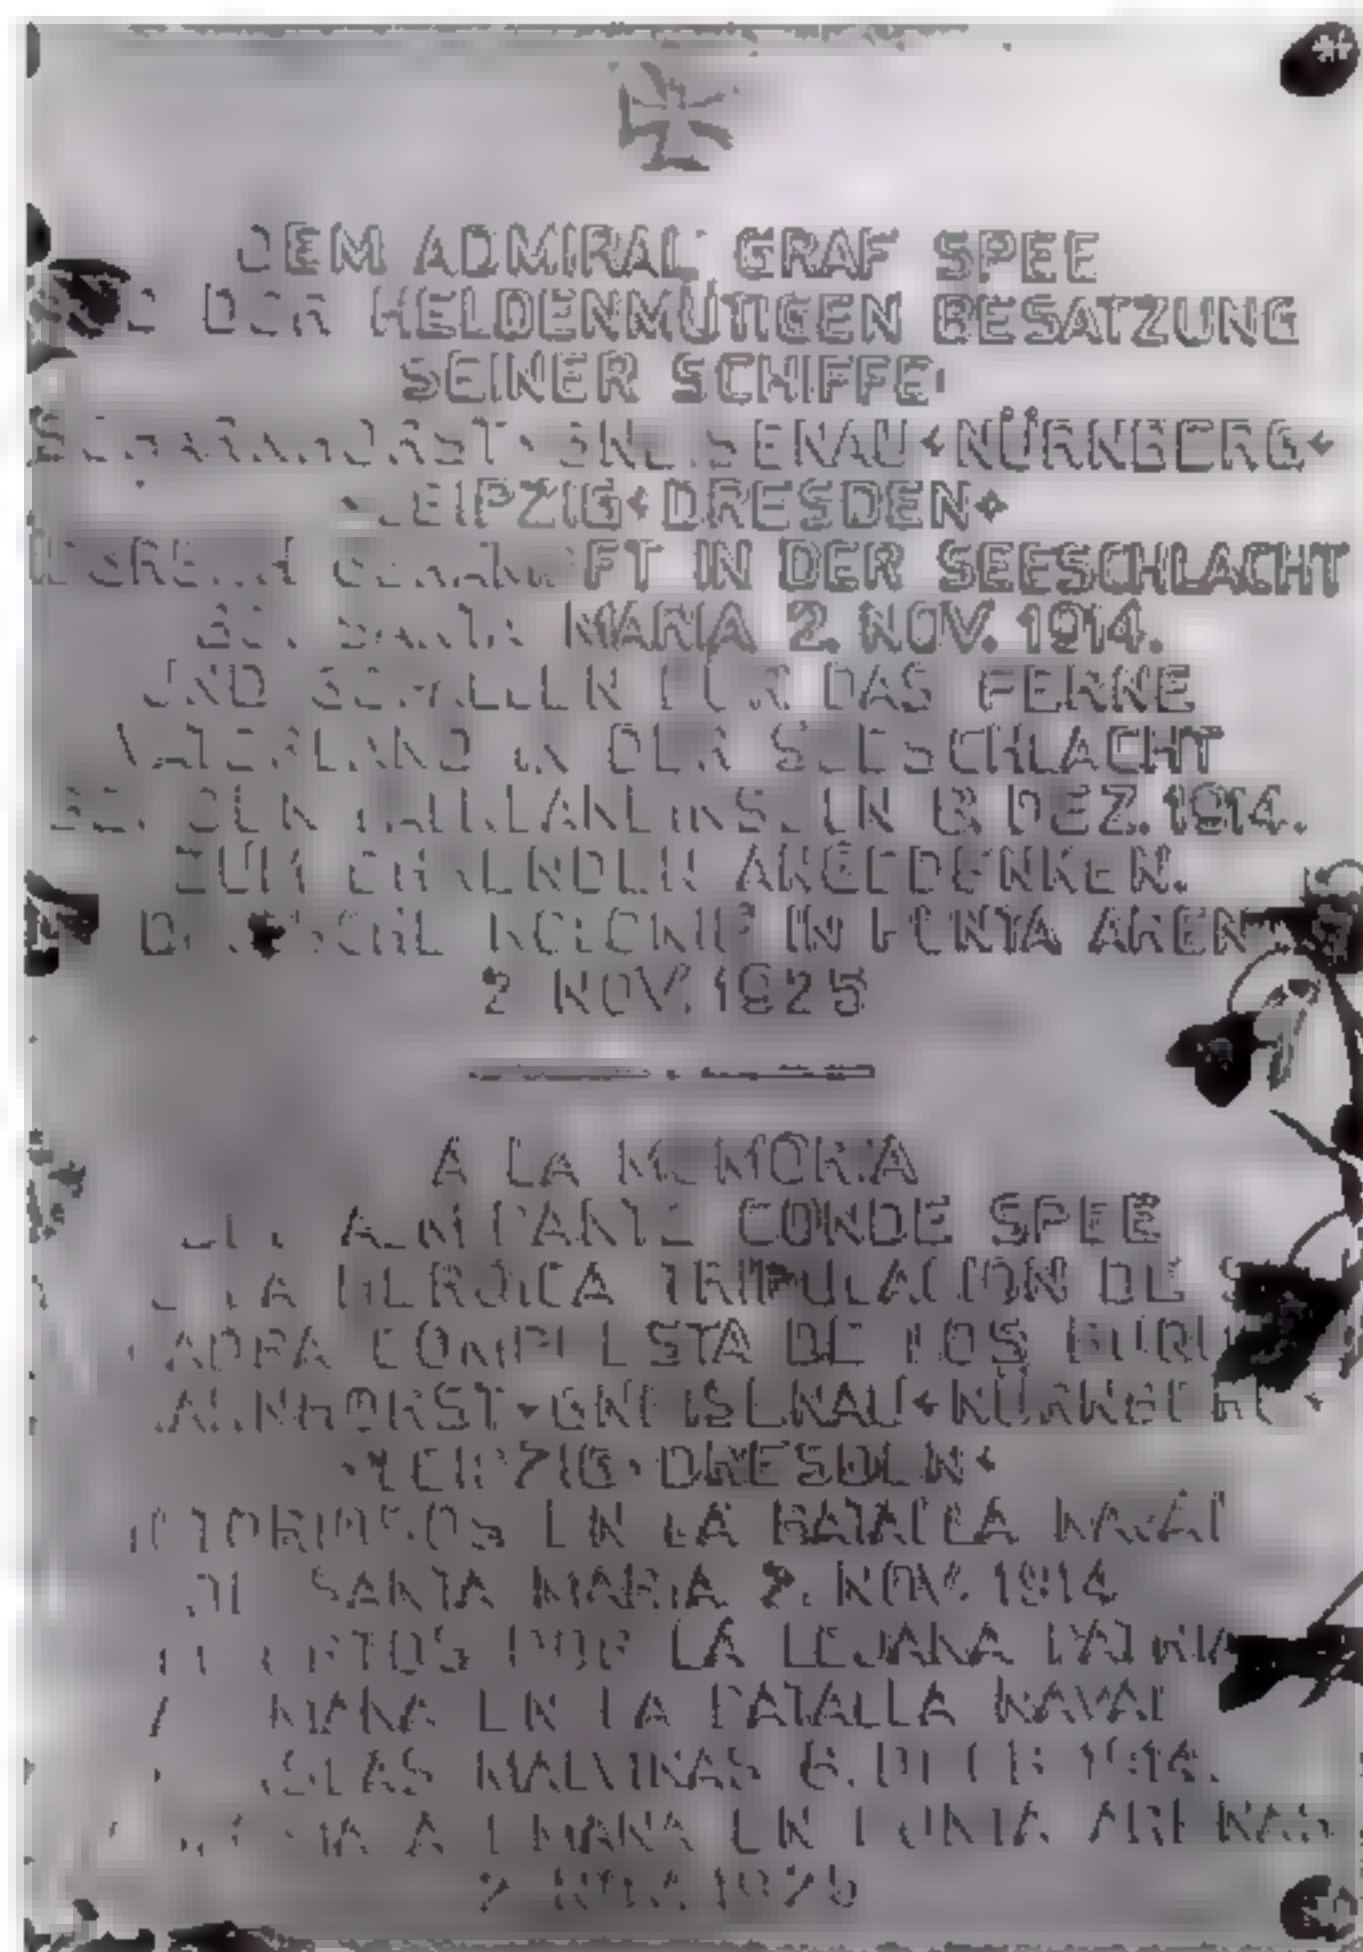 DEM ADMIRAL GRAF SPEE
UND DER HELDENMÜTIGEN BESATZUNG
SEINER SCHIFFE
SCHARNHORST · GNEISENAU · NÜRNBERG ·
· LEIPZIG · DRESDEN ·
SIEGREICH GEKÄMPFT IN DER SEESCHLACHT
BEI SANTA MARIA 2. NOV. 1914.
UND GEFALLEN FÜR DAS FERNE
VATERLAND IN DER SEESCHLACHT
BEI DEN FALKLANDINSELN 8. DEZ. 1914.
ZUM EHRENDEN ANGEDENKEN.
DEUTSCHE KOLONIE IN PUNTA ARENAS
2 NOV. 1925
A LA MEMORIA
DEL ALMIRANTE CONDE SPEE
LA HEROICA TRIPULACION DE
COMPUESTA DE LOS
· GNEISENAU · NÜRNBERG ·
· LEIPZIG · DRESDEN ·
VICTORIOSOS EN LA BATALLA NAVAL
DE SANTA MARIA 2. NOV. 1914
POR LA LEJANA PATRIA
EN LA BATALLA NAVAL
ISLAS MALVINAS 8. 1914.
ALEMANA EN PUNTA ARENAS
2 NOV. 1925